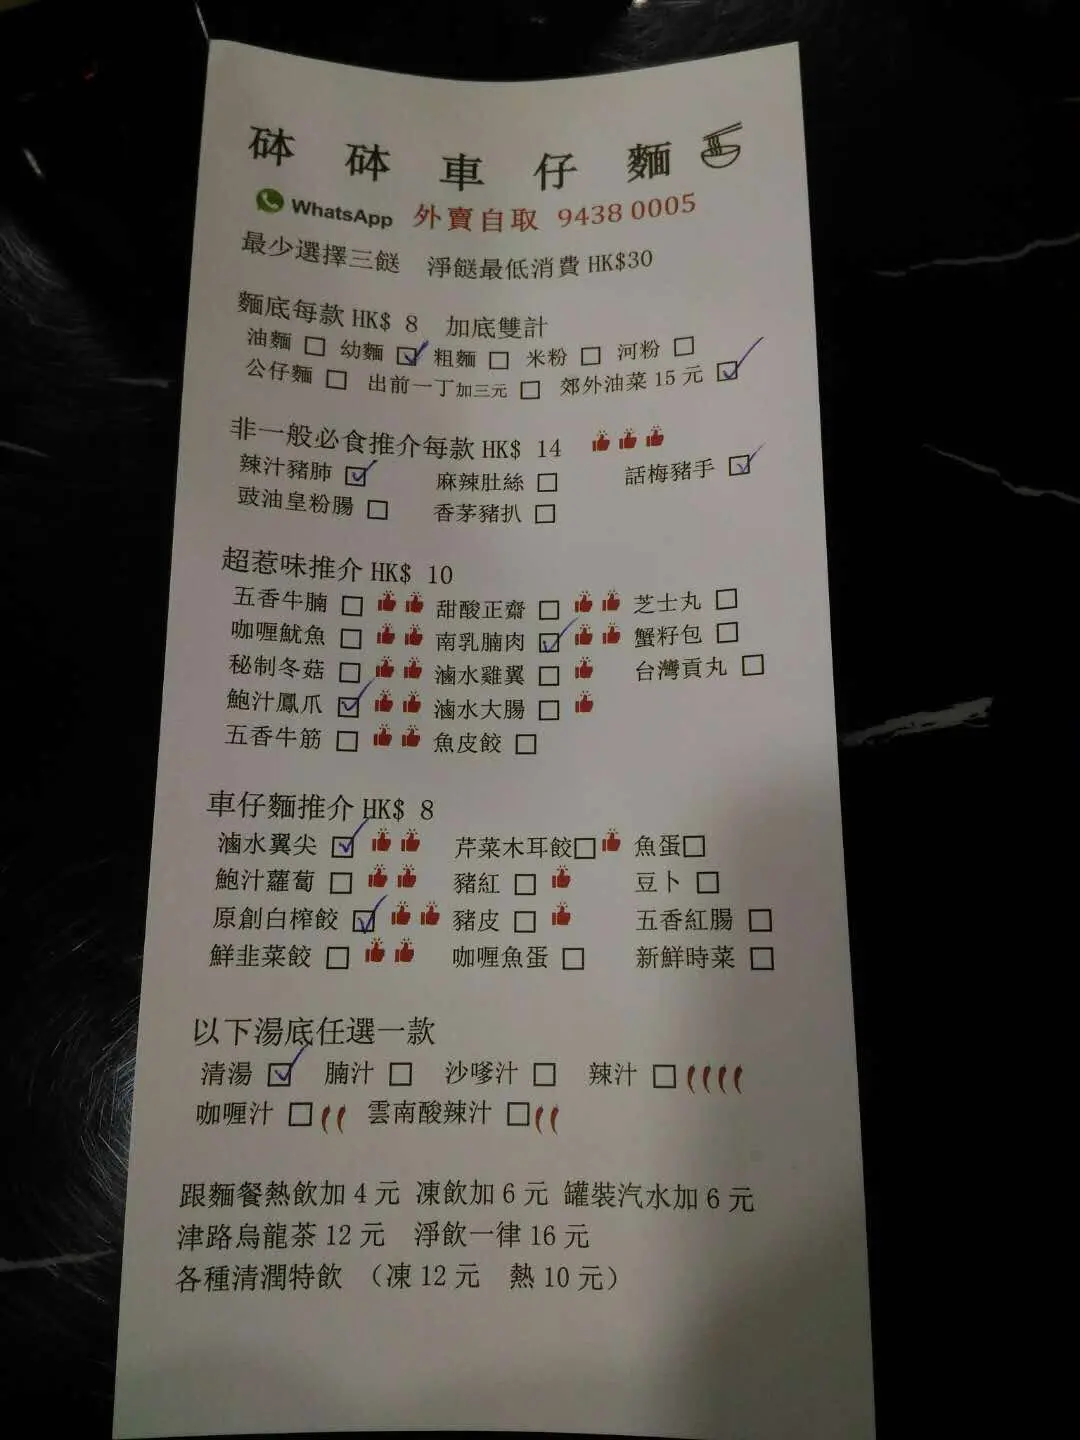 砵砵車仔麵
WhatsApp 外賣自取 9438 0005
最少選擇三餸 淨餸最低消費 HK$30
麵底每款 HK$ 8 加底雙計
油麵 □ 幼麵 ☑ 粗麵 □ 米粉 □ 河粉 □
公仔麵 □ 出前一丁加三元 □ 郊外油菜 15 元 ☑
非一般必食推介每款 HK$ 14
辣汁豬肺 ☑ 麻辣肚絲 □ 話梅豬手 ☑
豉油皇粉腸 □ 香茅豬扒 □
超惹味推介 HK$ 10
五香牛腩 □ 甜酸正齋 □ 芝士丸 □
咖喱魷魚 □ 南乳腩肉 ☑ 蟹籽包 □
秘制冬菇 □ 滷水雞翼 □ 台灣貢丸 □
鮑汁鳳爪 ☑ 滷水大腸 □
五香牛筋 □ 魚皮餃 □
車仔麵推介 HK$ 8
滷水翼尖 ☑ 芹菜木耳餃 □ 魚蛋 □
鮑汁蘿蔔 □ 豬紅 □ 豆卜 □
原創白榨餃 ☑ 豬皮 □ 五香紅腸 □
鮮韭菜餃 □ 咖喱魚蛋 □ 新鮮時菜 □
以下湯底任選一款
清湯 ☑ 腩汁 □ 沙嗲汁 □ 辣汁 □
咖喱汁 □ 雲南酸辣汁 □
跟麵餐熱飲加 4 元 凍飲加 6 元 罐裝汽水加 6 元
津路烏龍茶 12 元 淨飲一律 16 元
各種清潤特飲 （凍 12 元 熱 10 元）